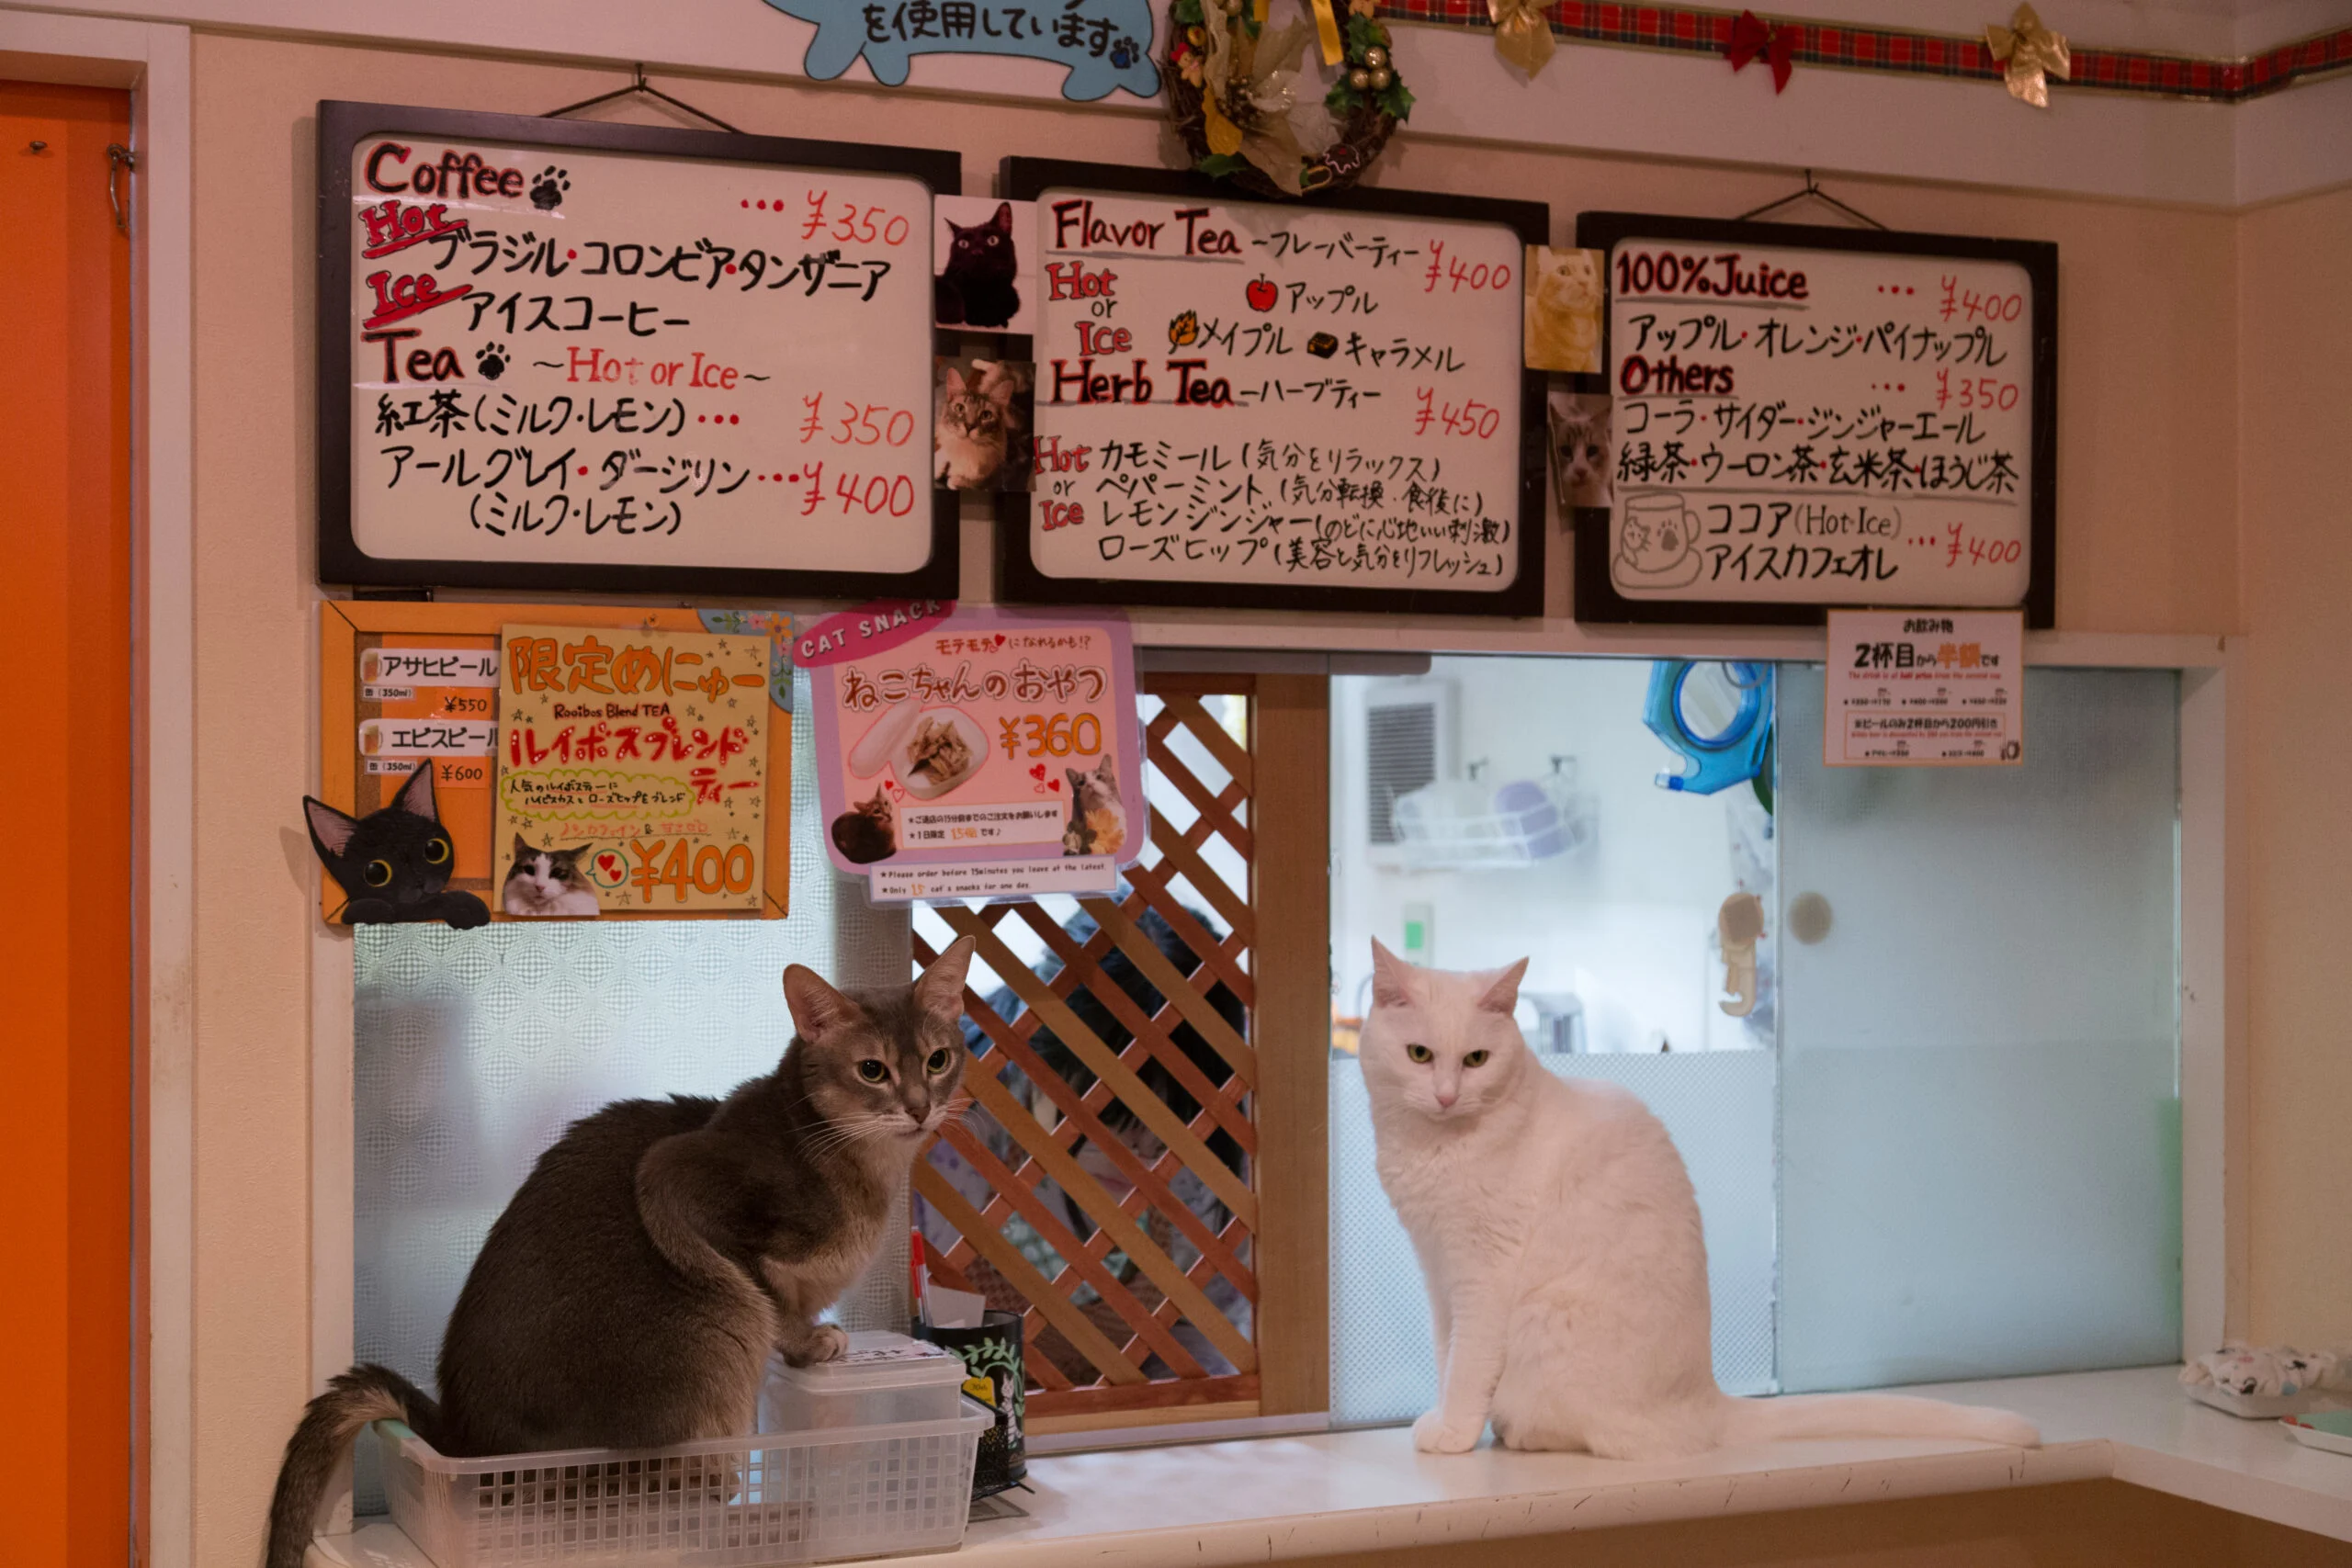 を使用しています
Coffee
... ¥350
Hot
ブラジル・コロンビア・タンザニア
Ice
アイスコーヒー
Tea ~Hot or Ice~
紅茶(ミルク・レモン)... ¥350
アールグレイ・ダージリン...¥400
(ミルク・レモン)
Flavor Tea ~フレーバーティー ¥400
Hot
or
Ice
アップル
メイプル キャラメル
Herb Tea ~ハーブティー
¥450
Hot
or
Ice
カモミール(気分をリラックス)
ペパーミント(気分転換・食後に)
レモンジンジャー(のどに心地いい刺激)
ローズヒップ(美容と気分をリフレッシュ)
100%Juice ... ¥400
アップル・オレンジ・パイナップル
Others ... ¥350
コーラ・サイダー・ジンジャーエール
緑茶・ウーロン茶・玄米茶・ほうじ茶
ココア(Hot・Ice)
アイスカフェオレ ...¥400
アサヒビール
缶(350ml)
¥550
エビスビール
缶(350ml)
¥600
限定めにゅー
Rooibos Blend TEA
ルイボスブレンド
ティー
人気のルイボスティーに
ハイビスカスとローズヒップをブレンド
ノンカフェイン&
¥400
CAT SNACK
モテモテ♥になれるかも!?
ねこちゃんのおやつ
¥360
★ご退店の15分前までのご注文をお願いします
★1日限定 15個 です♪
★Please order before 15minutes you leave at the latest.
★Only 15 cat's snacks for one day.
お飲み物
2杯目から半額です
The drink is at half price from the second cup
※ビールのみ2杯目から200円引き